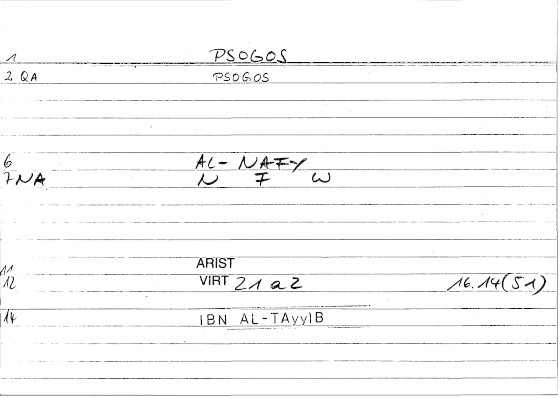 1 PSOGOS
2 QA PSOGOS
6 AL-NAFY
7 NA N F W
11 ARIST
12 VIRT 21 a 2 16.14(51)
14 IBN AL-TAyyIB